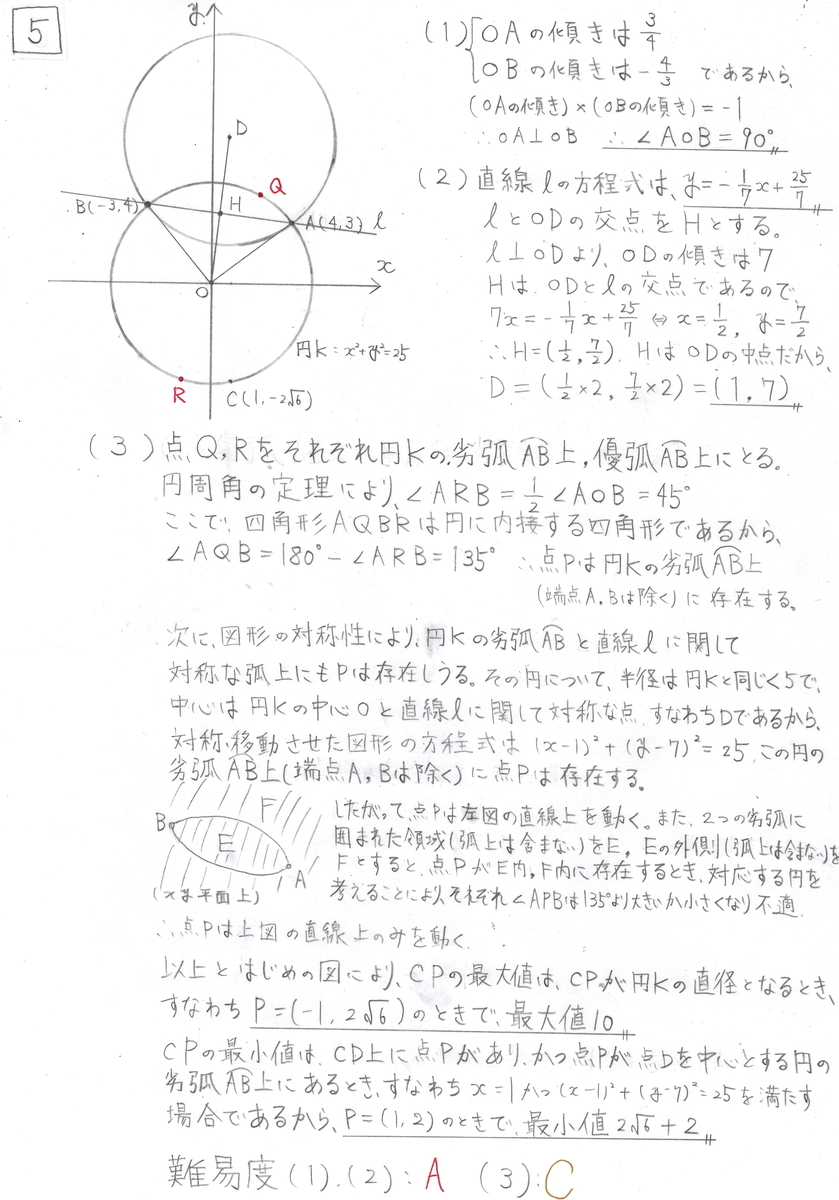 5
y
D
Q
B(-3,4)
H
A(4,3)
l
x
O
円K：x²+y²=25
R
C(1,-2√6)
(1) OAの傾きは 3/4
OBの傾きは -4/3 であるから、
(OAの傾き)×(OBの傾き)=-1
∴OA⊥OB ∴∠AOB=90°
(2) 直線lの方程式は、y=-1/7x+25/7
lとODの交点をHとする。
l⊥ODより、ODの傾きは7
Hは、ODとlの交点であるので、
7x=-1/7x+25/7 ⇔ x=1/2, y=7/2
∴H=(1/2,7/2). HはODの中点だから、
D=(1/2×2, 7/2×2)=(1,7)
(3) 点Q,Rをそれぞれ円Kの劣弧AB上,優弧AB上にとる。
円周角の定理により、∠ARB=1/2∠AOB=45°
ここで、四角形AQBRは円に内接する四角形であるから、
∠AQB=180°-∠ARB=135° ∴点Pは円Kの劣弧AB上
(端点A,Bは除く)に存在する。
次に、図形の対称性により、円Kの劣弧ABと直線lに関して
対称な弧上にもPは存在しうる。その円について、半径は円Kと同じく5で、
中心は円Kの中心Oと直線lに関して対称な点、すなわちDであるから、
対称移動させた図形の方程式は(x-1)²+(y-7)²=25、この円の
劣弧AB上(端点A,Bは除く)に点Pは存在する。
B
F
E
A
(xy平面上)
したがって、点Pは左図の直線上を動く。また、2つの劣弧に
囲まれた領域(弧上は含まない)をE、Eの外側(弧上は含まない)を
Fとすると、点PがE内,F内に存在するとき、対応する円を
考えることにより、それぞれ∠APBは135°より大きいか小さくなり不適.
∴点Pは上図の直線上のみを動く.
以上とはじめの図により、CPの最大値は、CPが円Kの直径となるとき、
すなわちP=(-1,2√6)のときで、最大値10
CPの最小値は、CD上に点Pがあり、かつ点Pが点Dを中心とする円の
劣弧AB上にあるとき、すなわちx=1かつ(x-1)²+(y-7)²=25を満たす
場合であるから、P=(1,2)のときで、最小値2√6+2
難易度(1).(2):A (3):C